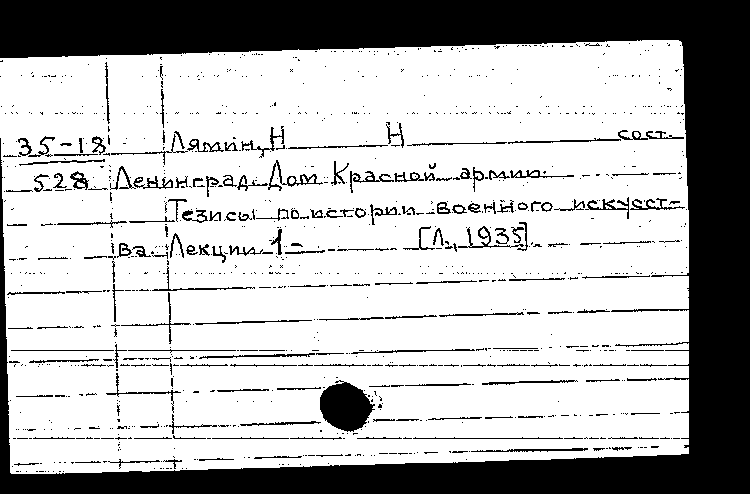 35-18 Лямин, Н Н сост.
528 Ленинград. Дом Красной армии.
Тезисы по истории военного искусст-
ва. Лекции 1- [Л., 1935].